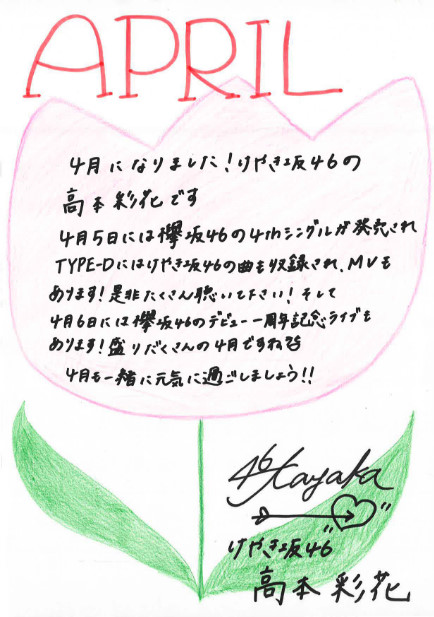 APRIL
4月になりました!けやき坂46の
高本彩花です
4月5日には欅坂46の4thシングルが発売され
TYPE-Dにはけやき坂46の曲も収録され、MVも
あります!是非たくさん聴いて下さい!そして
4月6日には欅坂46のデビュー一周年記念ライブも
あります!盛りだくさんの4月ですね
4月も一緒に元気に過ごしましょう!!
46 Ayaka
けやき坂46
高本彩花